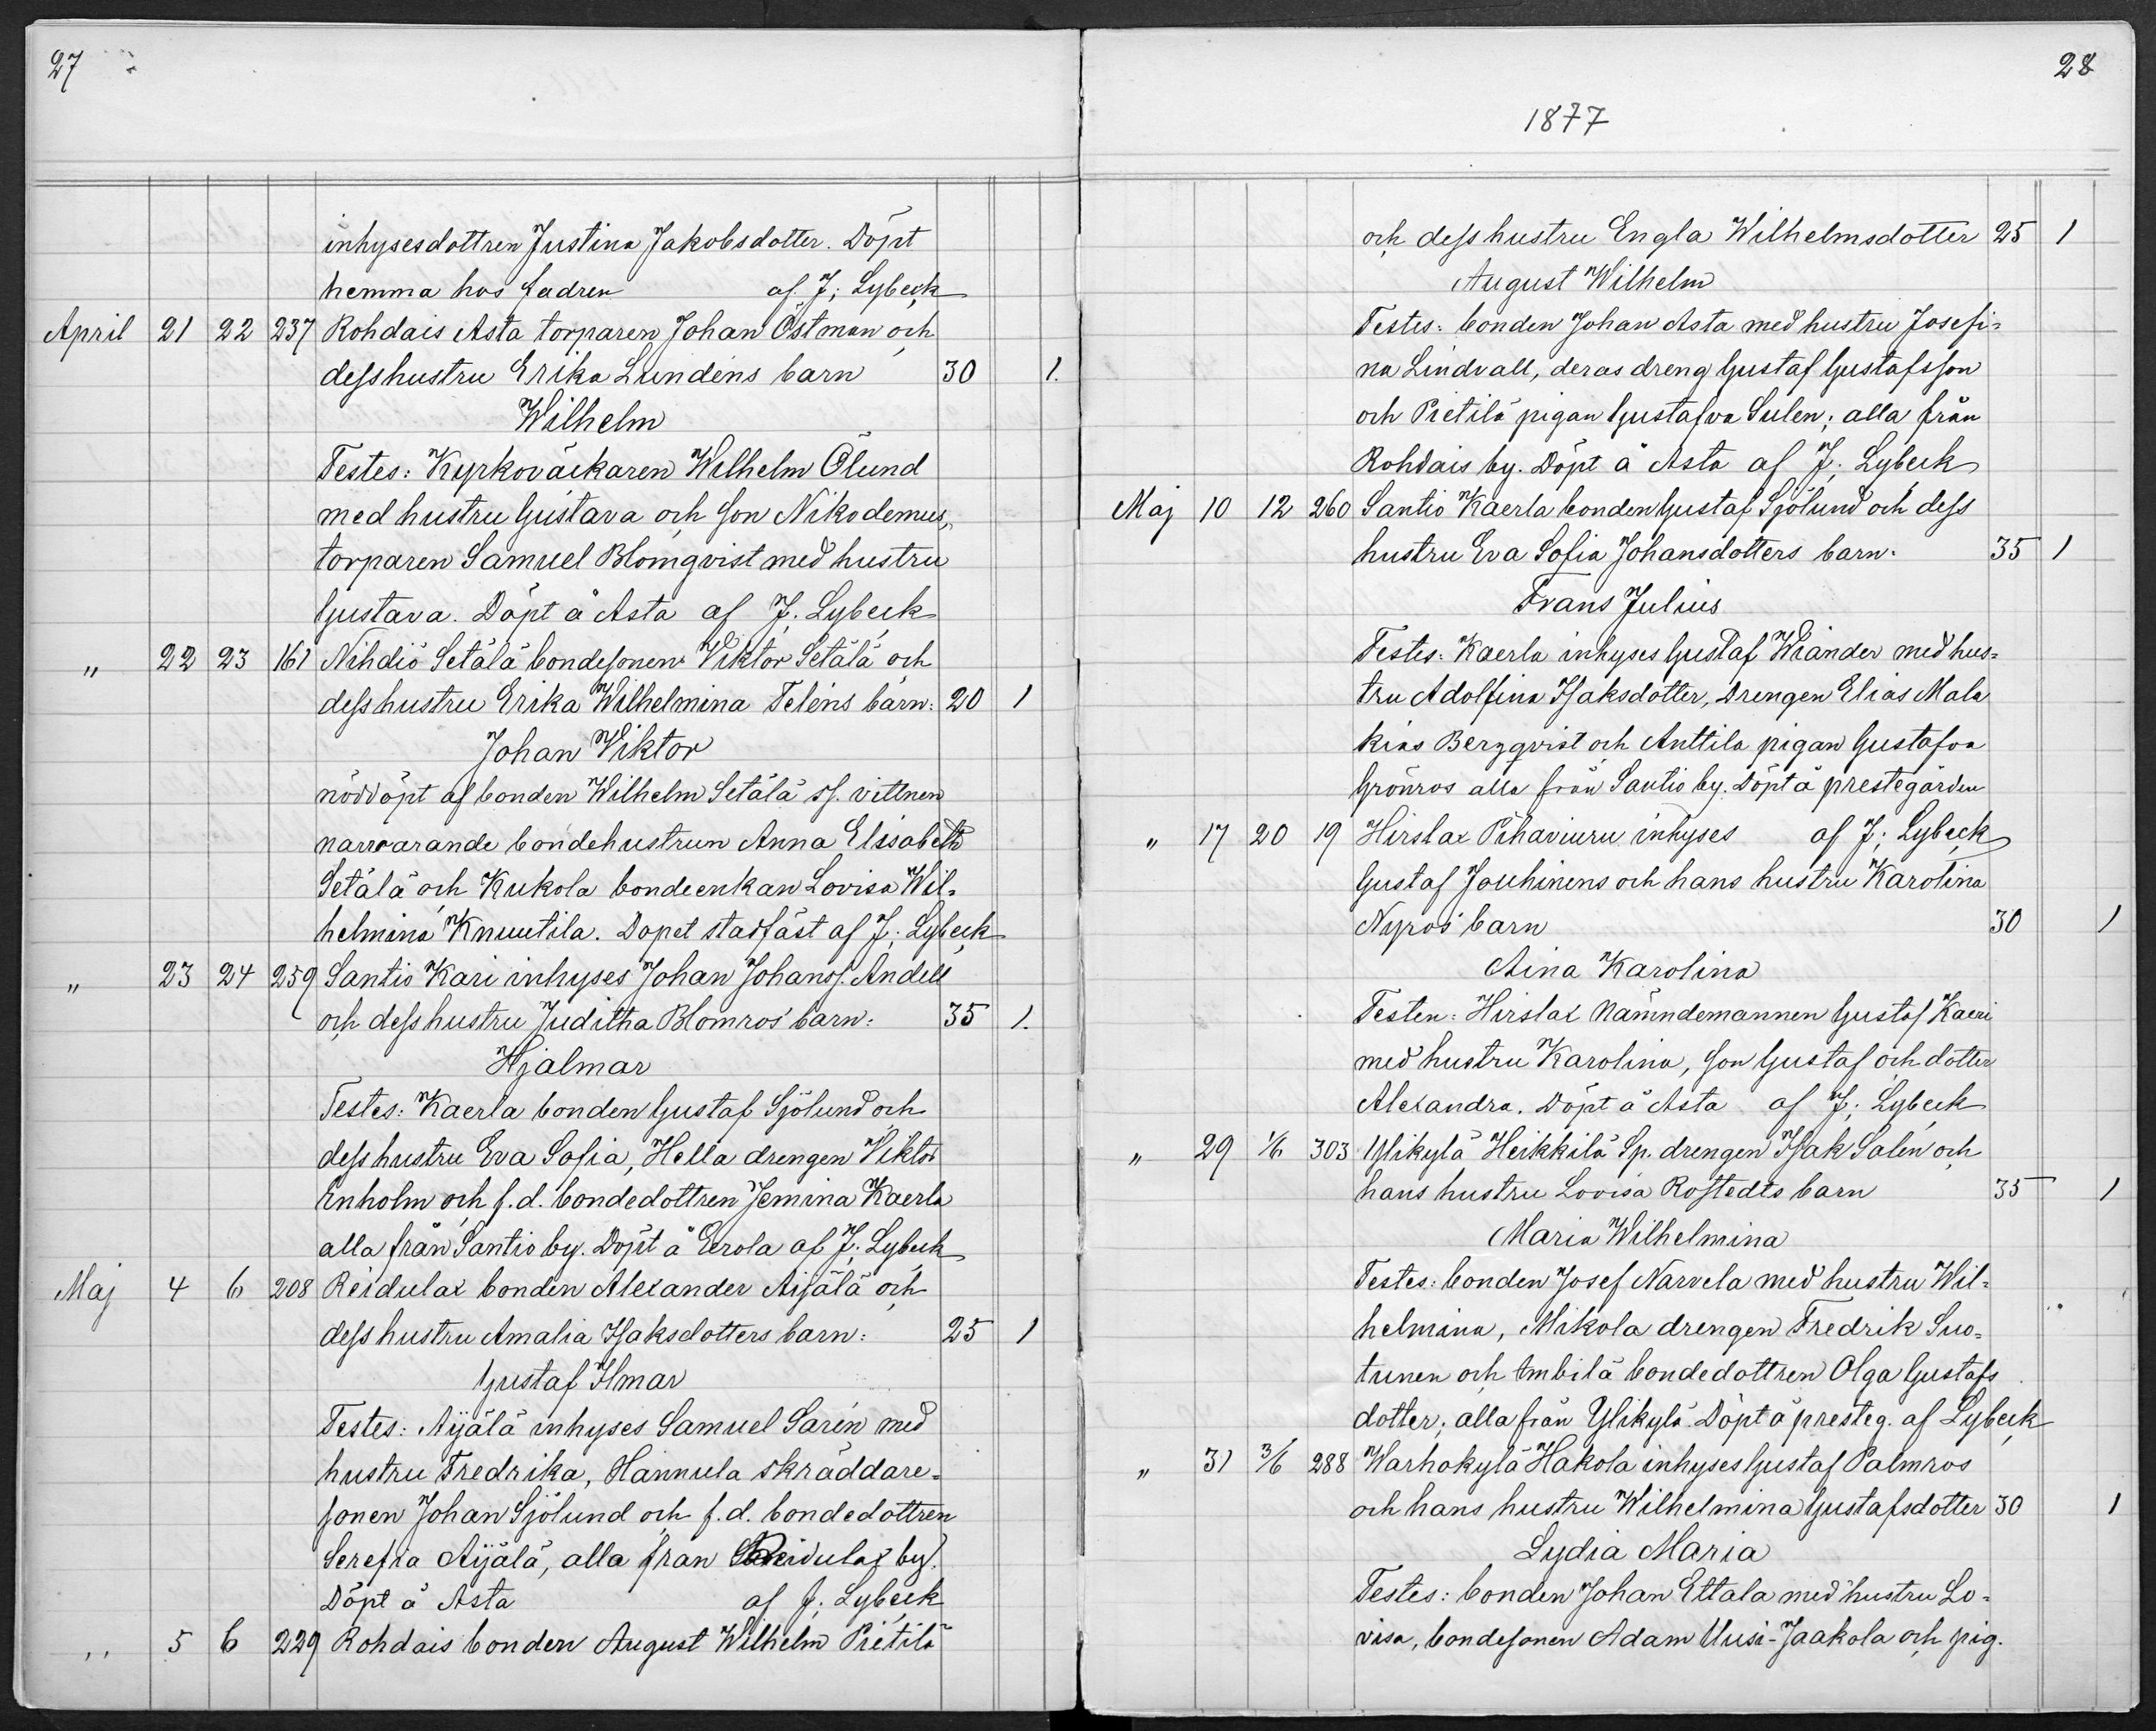 27
inhysesdottren Justina Jakobsdotter. Döpt
hemma hos fadren af J; Lybeck
April 21 22 237 Rohdais Asta torparen Johan Östman och
dess hustru Erika Lundéns barn 30 1.
Wilhelm
Testes: Kyrkoväckaren Wilhelm Ölund
med hustru Gustava och son Nikodemus,
torparen Samuel Blomqvist med hustru
Gustava. Döpt å Asta af J. Lybeck
" 22 23 161 Nihdiö Setälä bondesonen Viktor Setälä och
dess hustru Erika Wilhelmina Teléns barn: 20 1
Johan Viktor
nöddöpt af bonden Wilhelm Setälä sj. vittnen
narvarande bondehustrun Anna Elisabeth
Setälä och Kukola bondeenkan Lovisa Wil-
helmina Knuutila. Dopet stadfäst af J; Lybeck
" 23 24 259 Santio Kari inhyses Johan Johanss. Andell
och dess hustru Juditha Blomros' barn: 35 1.
Hjalmar
Testes: Kaerla bonden Gustaf Sjölund och
dess hustru Eva Sofia, Hella drengen Viktor
Enholm och f.d. bondedottren Jemina Kaerla
alla från Santio by. Döpt å Eerola af J; Lybeck
Maj 4 6 208 Reidulax bonden Alexander Aijälä och
dess hustru Amalia Isaksdotters barn: 25 1
Gustaf Ilmar
Testes: Aijälä inhyses Samuel Sarén med
hustru Fredrika, Hannula skräddare-
sonen Johan Sjölund och f.d. bondedottren
Serefia Aijälä, alla fran Reidulax by.
Döpt å Asta af J; Lybeck
" 5 6 229 Rohdais bonden August Wilhelm Pietilä
28
1877
och dess hustru Engla Wilhelmsdotter 25 1
August Wilhelm
Testes: bonden Johan Asta med hustru Josefi-
na Lindvall, deras dreng Gustaf Gustafsson
och Pietilä pigan Gustafva Sulen; alla från
Rohdais by. Döpt å Asta af J; Lybeck
Maj 10 12 260 Santio Kaerla bonden Gustaf Sjölund och dess
hustru Eva Sofia Johansdotters barn. 35 1
Frans Julius
Testes: Kaerla inhyses Gustaf Wiander med hus-
tru Adolfina Isaksdotter, Drengen Elias Mala
kias Bergqvist och Anttila pigan Gustafva
Grönros alla från Santio by. Döpt å prestegården
" 17 20 19 Hirslax Pihaviuru inhyses af J; Lybeck
Gustaf Jouhinens och hans hustru Karolina
Nyros' barn 30 1
Aina Karolina
Testen: Hirslax Nämndemannen Gustaf Kaeri
med hustru Karolina, son Gustaf och dotter
Alexandra. Döpt å Asta af J; Lybeck
" 29 1/6 303 Ylikylä Heikkilä Sp. drengen Isak Salén och
hans hustru Lovisa Rostedts barn 35 1
Maria Wilhelmina
Testes: bonden Josef Narvela med hustru Wil-
helmina, Mikola drengen Fredrik Suo-
tunen och Ambilä bondedottren Olga Gustafs
dotter; alla från Ylikylä. Döpt å presteg. af Lybeck
" 31 3/6 288 Warhokylä Hakola inhyses Gustaf Palmros
och hans hustru Wilhelmina Gustafsdotter 30 1
Lydia Maria
Testes: bonden Johan Ettala med hustru Lo-
visa, bondesonen Adam Uusi-Jaakola och pig.